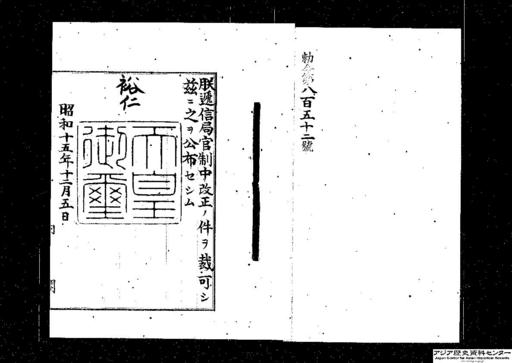 勅令第八百五十二號
朕遞信局官制中改正ノ件ヲ裁可シ
茲ニ之ヲ公布セシム
裕仁
天皇
御璽
昭和十五年十二月五日
内閣
アジア歴史資料センター
Japan Center for Asian Historical Records